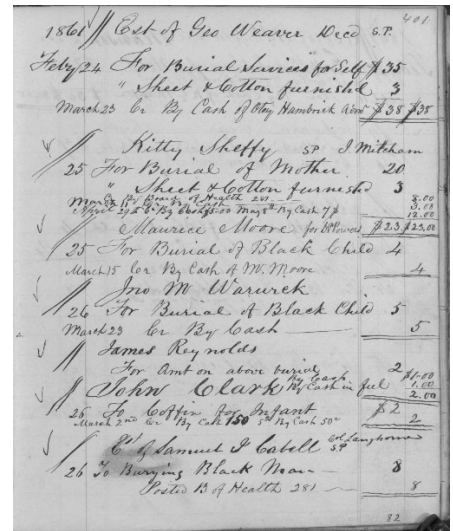 401
1861 Est of Geo Weaver Decd S.P.
Feby 24 For Burial Services for Self $35
" Sheet & Cotton furnished 3
March 23 Cr By Cash of Otey Hambrick Adm $38 $38
Kitty Sheffy SP J Mitcham
25 For Burial of Mother 20
" Sheet & Cotton furnished 3
Mar Board of Health 281 8.00
April 29th Cr By Cash $5.00 May 8th By Cash 7$ 3.00
12.00
Maurice Moore for Powers $23 $23,00
25 For Burial of Black Child 4
March 15 Cr By Cash of M. Moore 4
Jno M Warwick
26 For Burial of Black Child 5
March 23 Cr By Cash 5
James Reynolds
For Amt on above burial 2
By Cash $1.00
John Clark By Cash in full 1.00
2.00
26 To Coffin for Infant $2
March 2nd Cr By Cash 150 5th By Cash 50c 2
Est of Samuel J Cabell Col Langhorne SP
26 To Burying Black Man 8
Posted B of Health 281 8
82